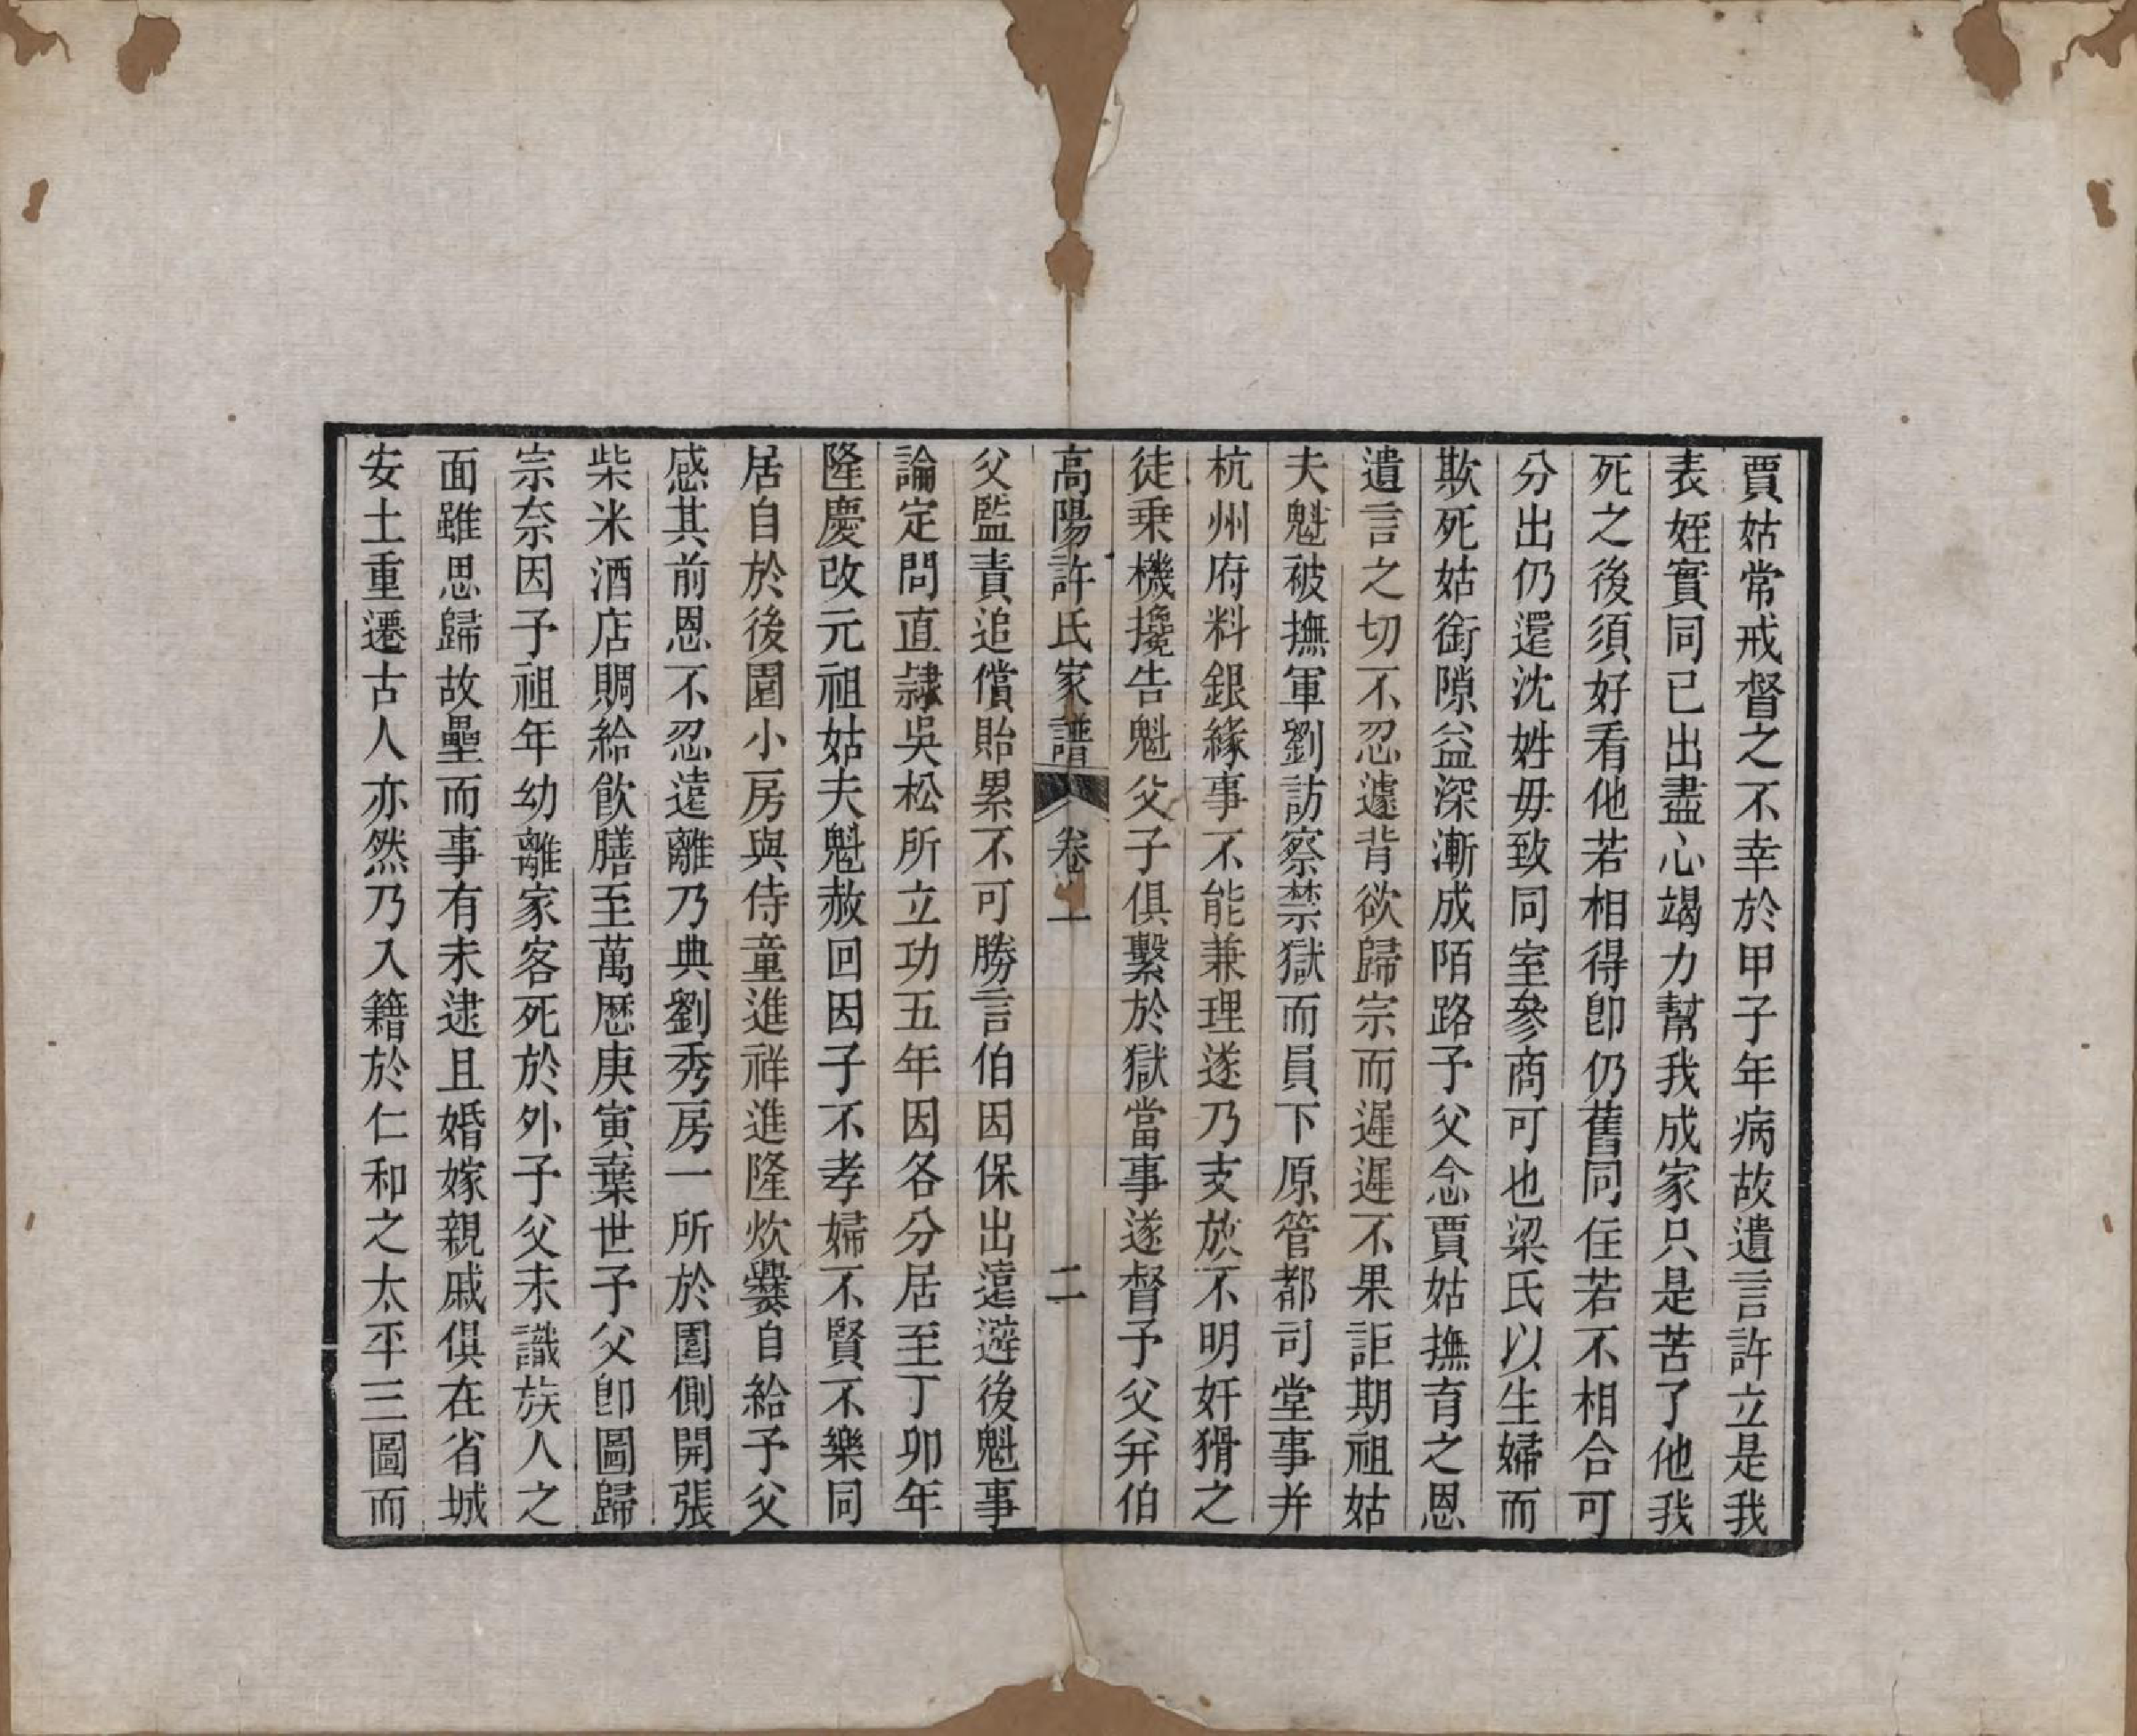 賈姑常戒督之不幸於甲子年病故遺言許立是我
表姪實同已出盡心竭力幫我成家只是苦了他我
死之後須好看他若相得卽仍舊同住若不相合可
分出仍還沈姓毋致同室參商可也梁氏以生婦而
欺死姑銜隙益深漸成陌路予父念賈姑撫育之恩
遺言之切不忍遽背欲歸宗而遲遲不果詎期祖姑
夫魁被撫軍劉訪察禁獄而員下原管都司堂事并
杭州府料銀緣事不能兼理遂乃支放不明奸猾之
徒乗機攙告魁父子俱繫於獄當事遂督予父并伯
高陽許氏家譜 卷一 二
父監責追償貽累不可勝言伯因保出遠避後魁事
論定問直隷吳松所立功五年因各分居至丁卯年
隆慶改元祖姑夫魁赦回因子不孝婦不賢不樂同
居自於後園小房與侍童進祥進隆炊爨自給予父
感其前恩不忍遠離乃典劉秀房一所於園側開張
柴米酒店賙給飮膳至萬厯庚寅棄世予父卽圖歸
宗奈因予祖年幼離家客死於外予父未識族人之
面雖思歸故壘而事有未逮且婚嫁親戚俱在省城
安土重遷古人亦然乃入籍於仁和之太平三圖而